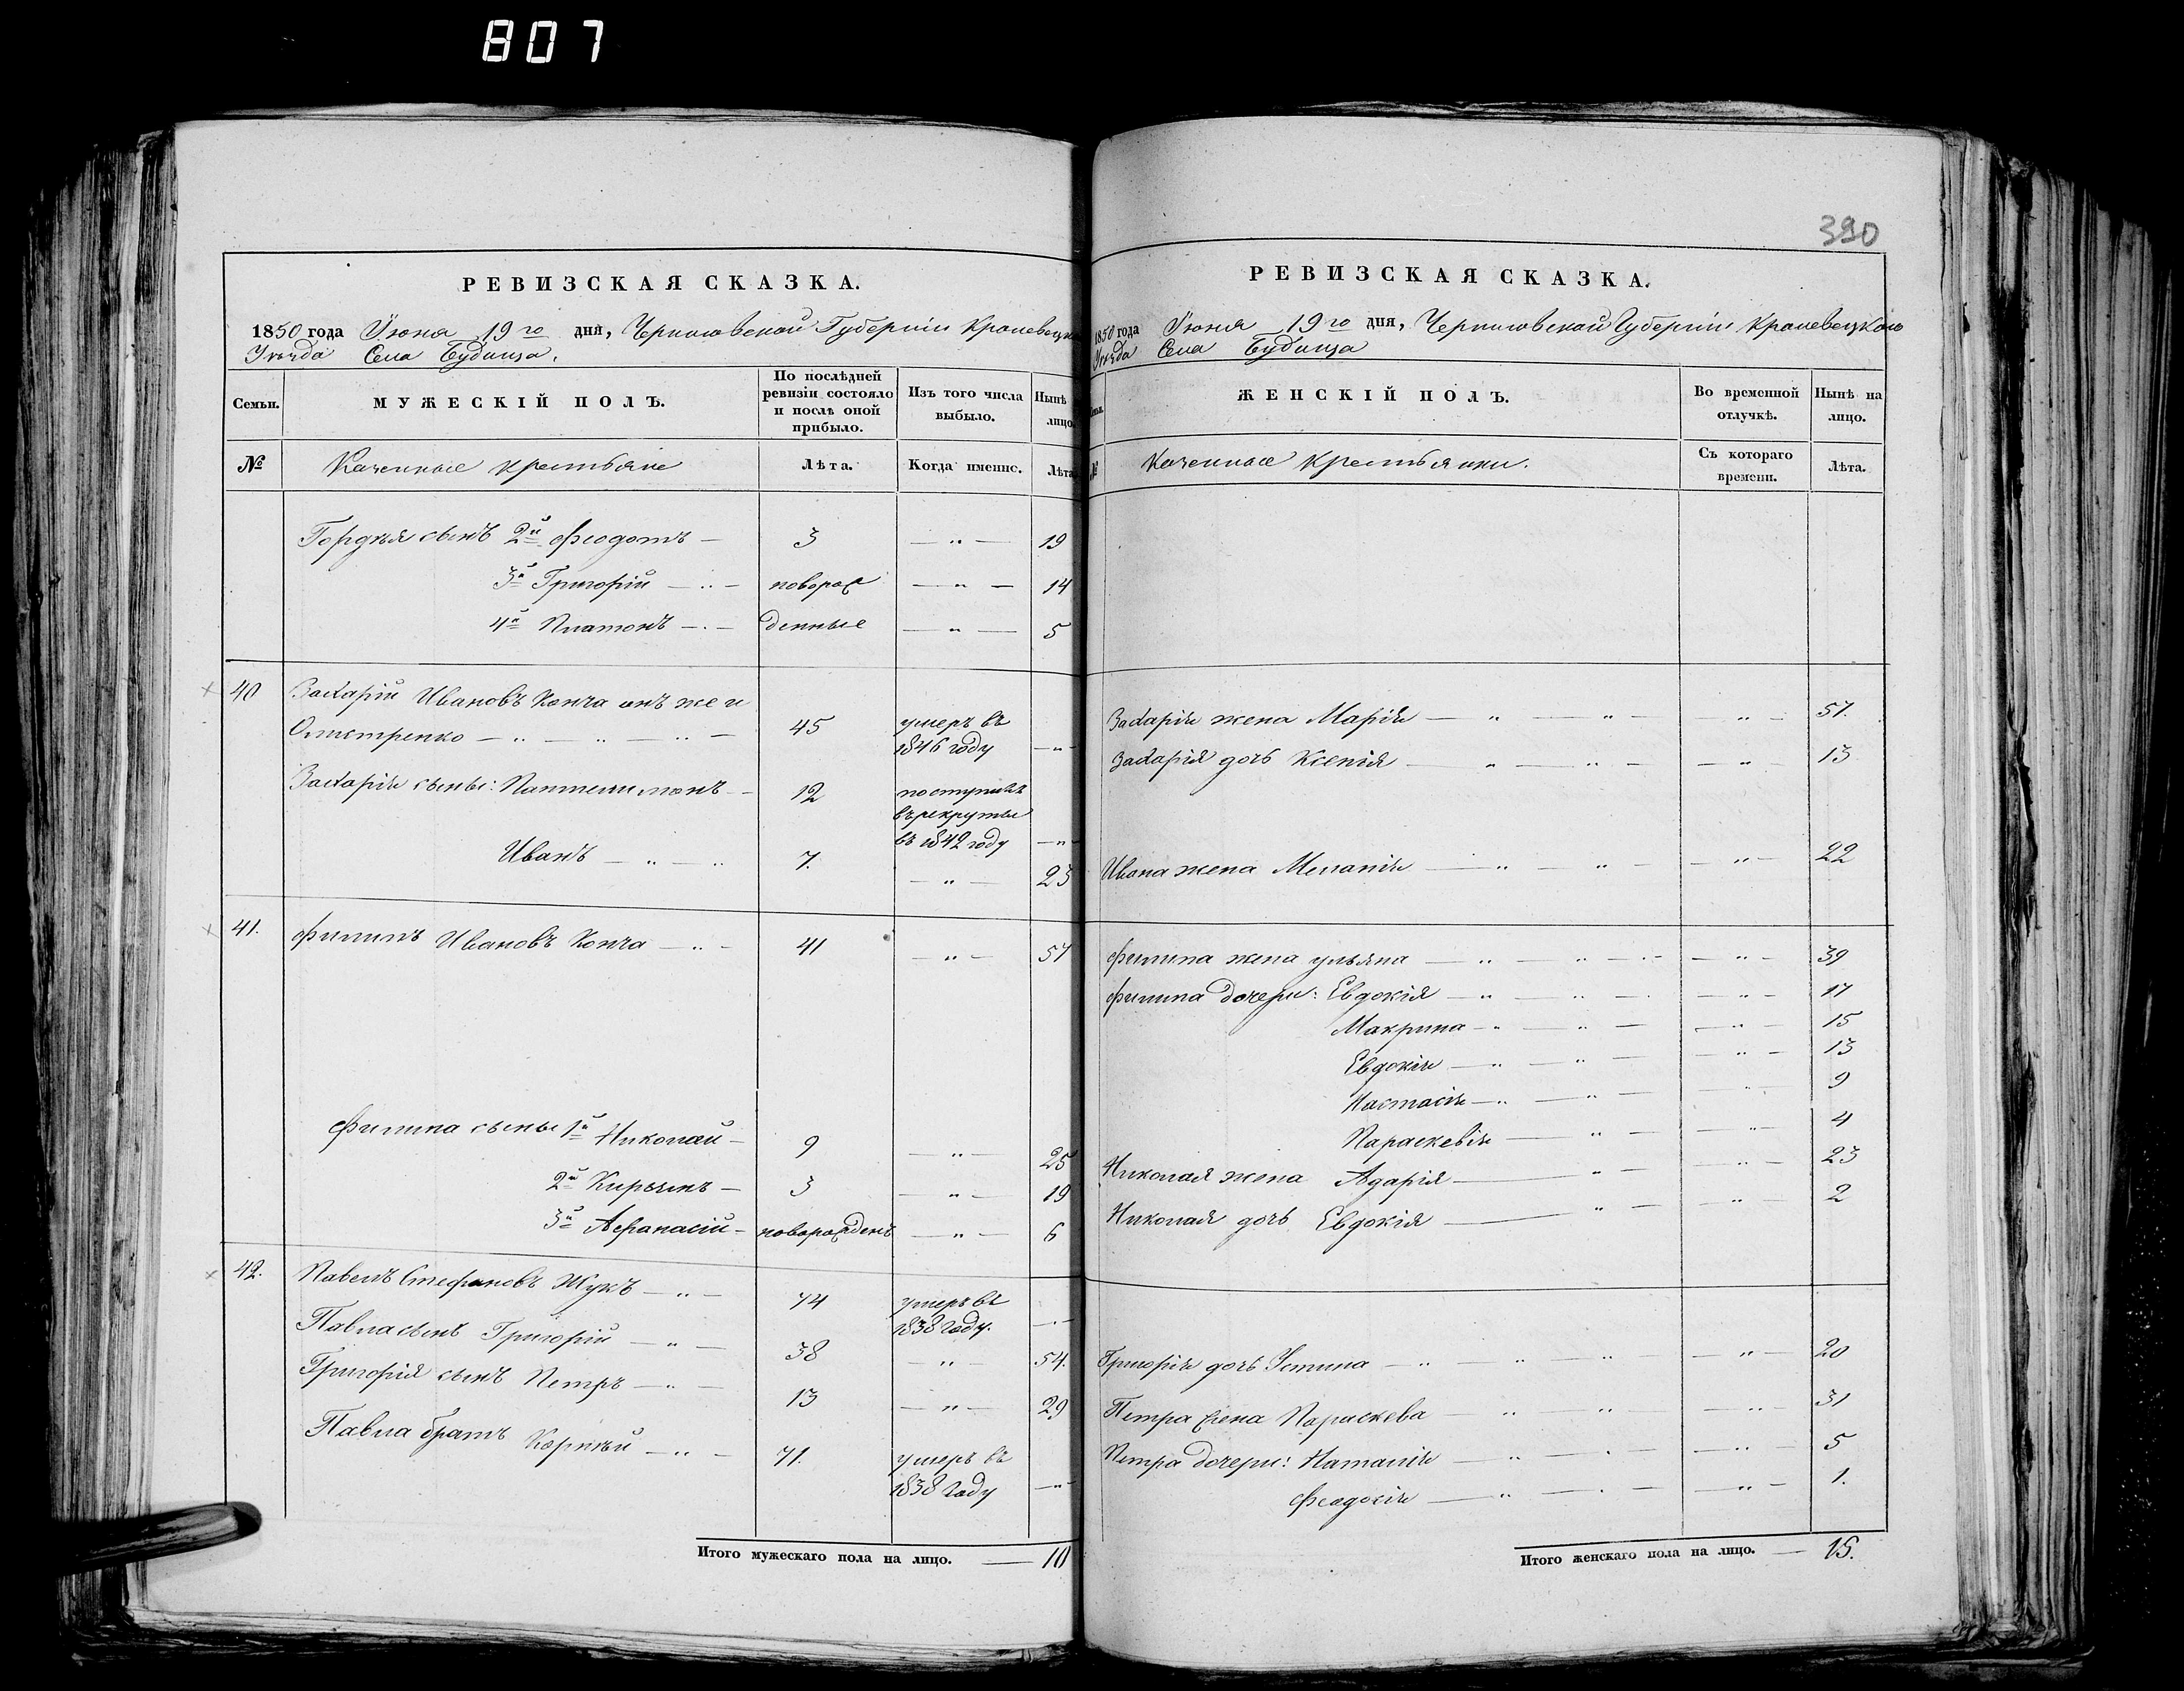 807
РЕВИЗСКАЯ СКАЗКА.
1850 года Іюня 19го дня, Черниговской Губерніи Кролевецка
Уѣзда Села Будища.
Семьи.
МУЖЕСКІЙ ПОЛЪ.
По послѣдней
ревизіи состояло
и послѣ оной
прибыло.
Изъ того числа
выбыло.
Нынѣ
лицо
№
Казенные крестьяне
Лѣта.
Когда именно.
Лѣта
Гордѣя сынъ 2й Феодотъ — 3 — " — 19
3й Григорій — " — новорож — " — 14
4й Платонъ — " — денные — " — 5
40 Захарій Ивановъ Конча онъ же и
— " — " — " — 45 умеръ въ
1846 году — " —
Захарія сыны: Пантелимонъ — 12 поступилъ
въ рекруты
въ 1842 году — " —
Иванъ — " — " 7. — " — 23
41. Филипъ Ивановъ Конча — " — 41 — " — 57
Филипа сыны 1й Николай — 9 — " — 25
2й — 3 — " — 19
3й Афанасій — новорожденъ — " — 6
42. Павелъ Стефановъ Жукъ — " — 74 умеръ въ
1838 году. — " —
Павла сынъ Григорій — " — 38 — " — 54.
Григорія сынъ Петръ — " — 13 — " — 29
Павла братъ Корнѣй — " — 71. умеръ въ
1838 году — " —
Итого мужескаго пола на лицо. — 10
390
РЕВИЗСКАЯ СКАЗКА.
1850 года Іюня 19го дня, Черниговской Губерніи Кролевецкого
Уѣзда Села Будища
ЖЕНСКІЙ ПОЛЪ.
Во временной
отлучкѣ.
Нынѣ на
лицо.
№
Казенные крестьянки.
Съ котораго
времени.
Лѣта.
Захарія жена Марія — " — " — " — 57.
Захарія дочь Ксенія — " — " — " 13
Ивана жена Меланія — " — " — " — 22
Филипа жена Ульяна — " — " — " — 39
Филипа дочери: Евдокія — " — " — " — 17
Макрина — " — " — " — 15
Евдокія — " — " — " — 13
Настасія — " — " — " — 9
Параскевія — " — " — 4
Николая жена Адарія — " — " — 23
Николая дочь Евдокія — " — " — 2
Григорія дочь Устина — " — " — " — " — 20
Петра жена Параскева — " — " — " — 31
Петра дочери: Наталія — " — " — " — 5
Феодосія — " — " — " — 1.
Итого женскаго пола на лицо. — 15.